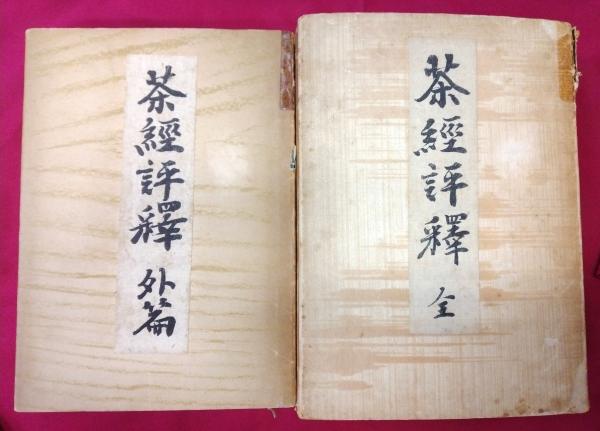 茶經評釋 全
茶經評釋 外篇